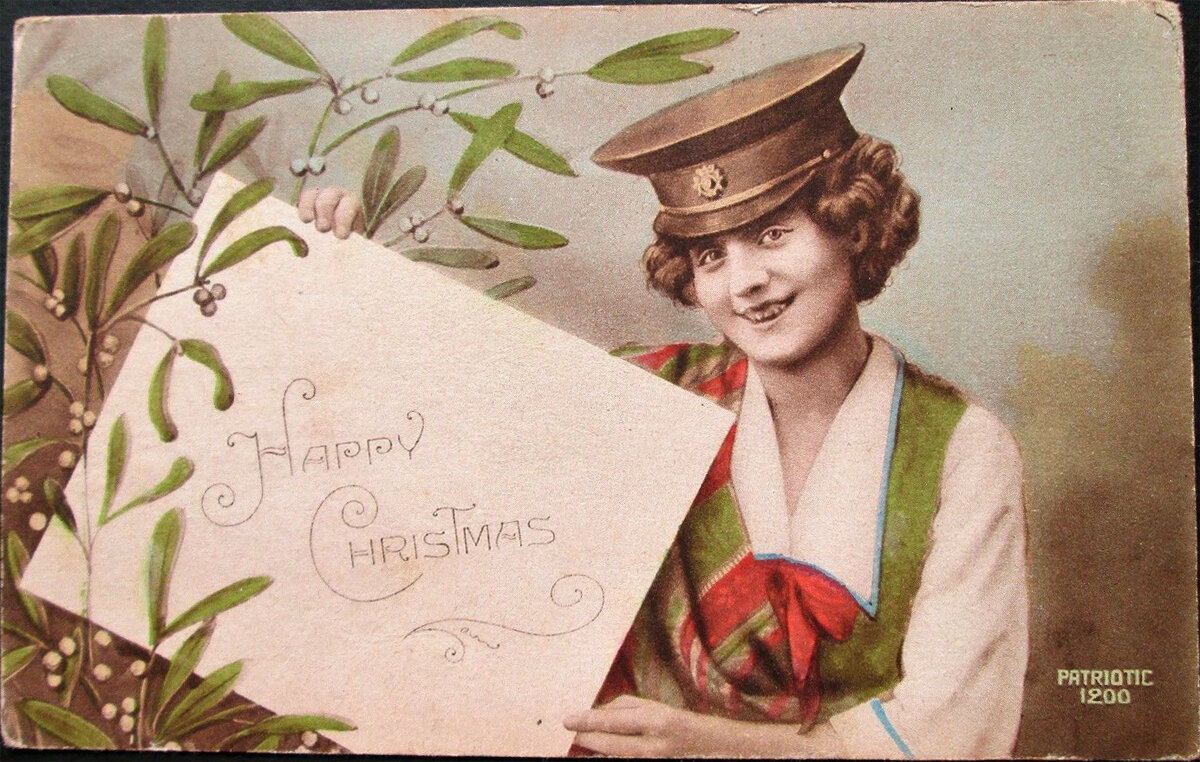 Happy
Christmas
PATRIOTIC
1200